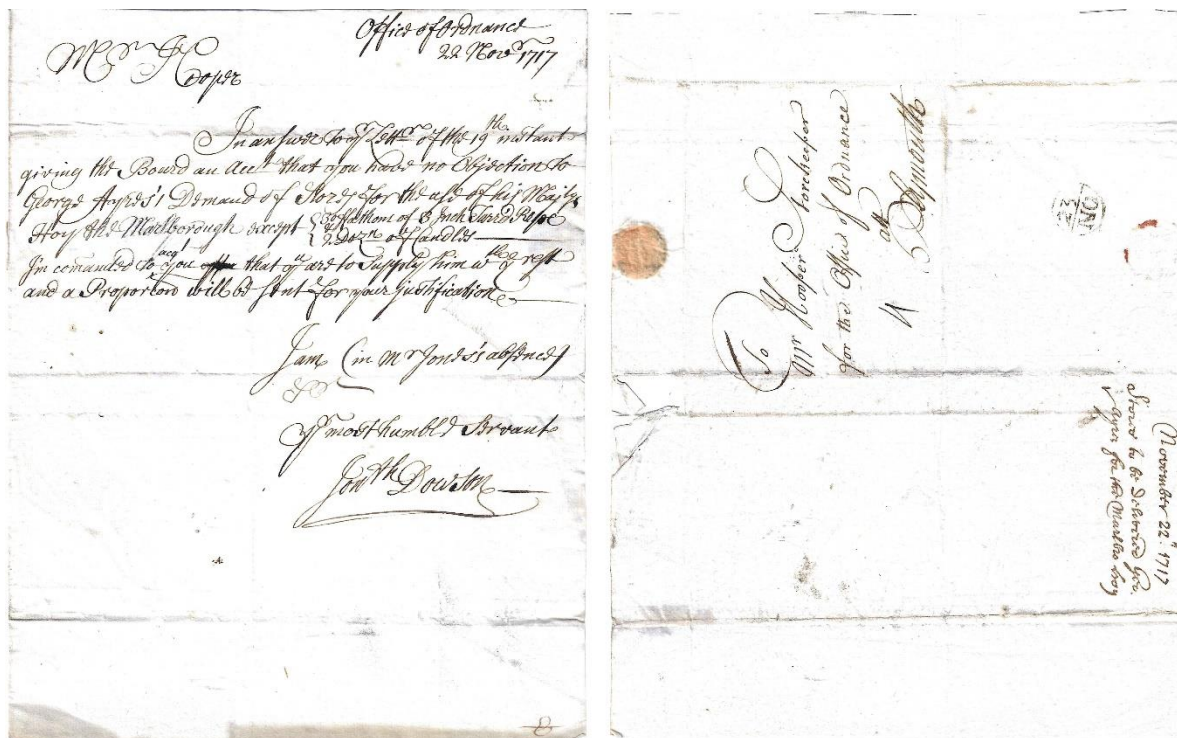 Office of Ordnance
22 Novr 1717
Mr Hooper
In answer to yr Lettr of the 19th instant
giving the Board an Acct that you have no Objection to
George Ayres's Demand of Stores for the use of his Majtys
Hoy the Marlborough except { fathom of 3 Inch Tarred Rope
2 Dozn of Candles
I'm comanded to acqt you that yu are to Supply him wth ye rest
and a Proportion will be sent for your justification
I am (in Mr Jones's absence)
Sr
Yr most humble Servant
Jonth Dowson
To
Mr Hooper Storekeeper
for the Office of Ordnance
att
Plymouth
23
NO
November 22d. 1717
Stores to be delivered Geo.
Ayres for the Marlbro hoy